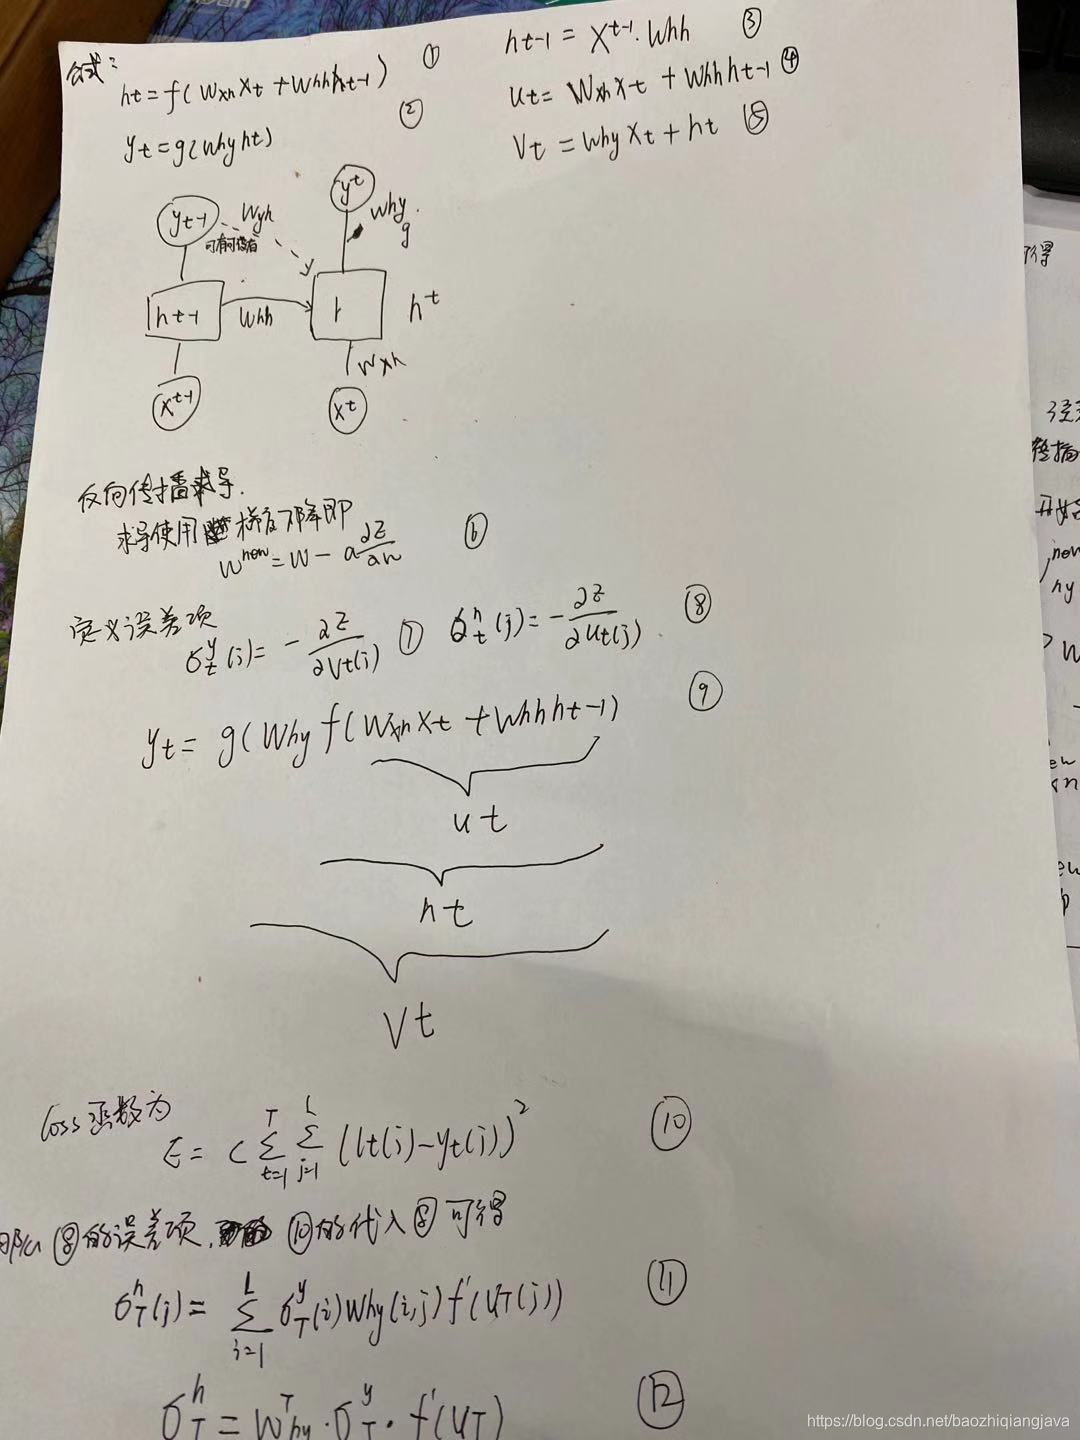 公式:
ht = f(Wxh Xt + Whh ht-1) ①
yt = g(Why ht) ②
ht-1 = X^t-1 · Whh ③
ut = Wxh Xt + Whh ht-1 ④
Vt = Why Xt + ht ⑤
yt-1
Wyh
可有可没有
y^t
Why
g
ht-1
Whh
h
h^t
Wxh
X^t-1
Xt
反向传播求导.
求导使用 梯度下降即
W^new = W - a ∂Z/∂W ⑥
定义误差项
σ_t^y(j) = - ∂Z/∂Vt(j) ⑦ σ_t^h(j) = - ∂Z/∂ut(j) ⑧
yt = g(Why f(Wxh Xt + Whh ht-1) ⑨
ut
ht
Vt
Loss函数为
E = C Σ_{t=1}^{T} Σ_{j=1}^{L} (lt(j) - yt(j))^2 ⑩
那么⑧的误差项, ⑩的代入⑧可得
σ_T^h(j) = Σ_{i=1}^{L} σ_T^y(i) Why(i,j) f'(UT(j)) ⑪
σ_T^h = W^T hy · σ_T^y · f'(UT) ⑫
可得
开始
new
hy
https://blog.csdn.net/baozhiqiangjava